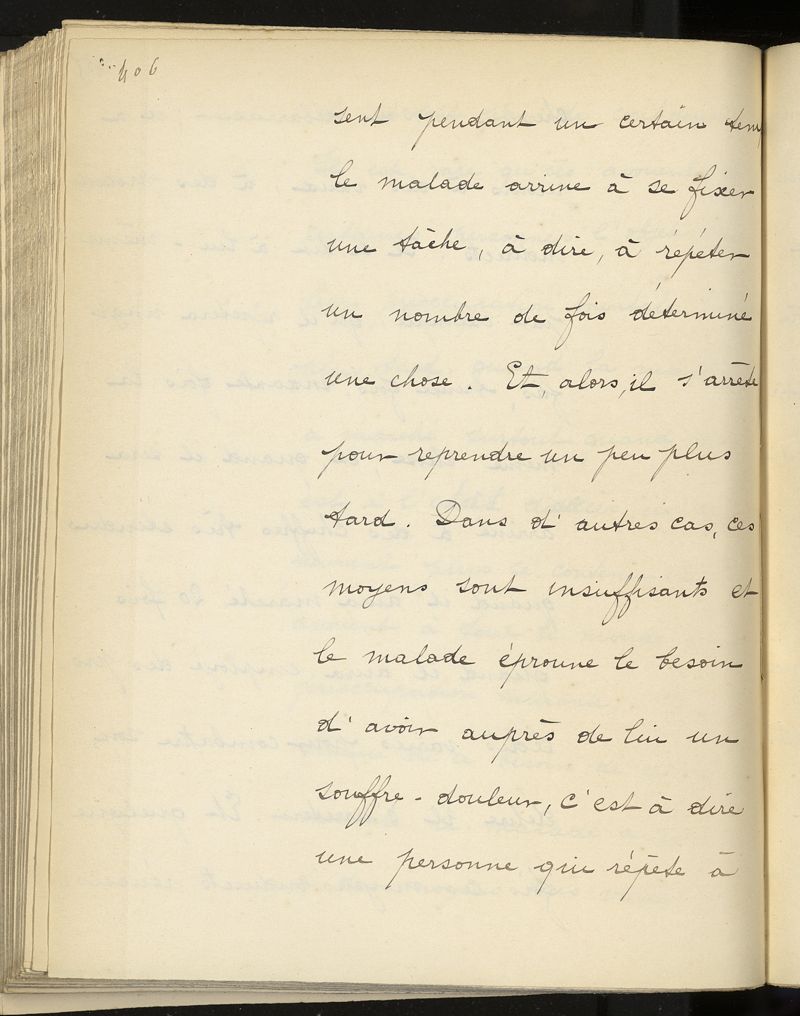 406
sent pendant un certain tem
le malade arrive à se fixer
une tâche, à dire, à répéter
un nombre de fois déterminé
une chose. Et, alors, il s'arrête
pour reprendre un peu plus
tard. Dans d'autres cas, ces
moyens sont insuffisants et
le malade éprouve le besoin
d'avoir auprès de lui un
souffre-douleur, c'est à dire
une personne qui répète à